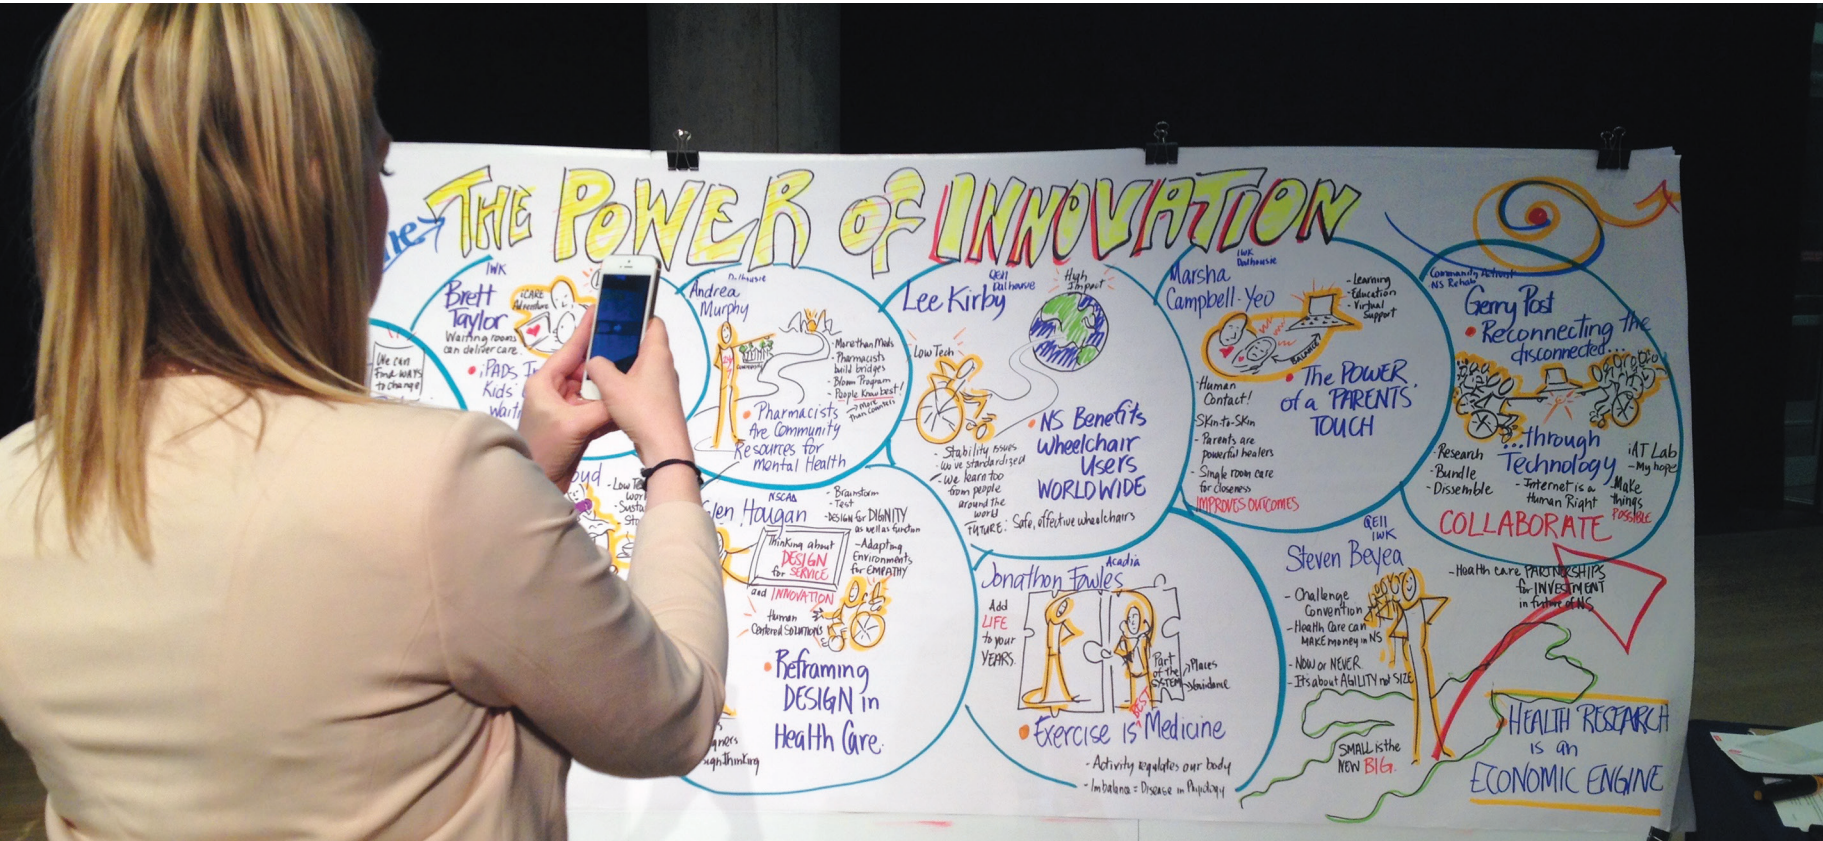 THE POWER OF INNOVATION
We can
find WAYS
to change
IWK
Brett
Taylor
Waiting rooms
can deliver care.
iCARE
Adventure
• iPADS
Kids'
Dalhousie
Andrea
Murphy
- More than Meds
- Pharmacists
build bridges
- Bloom Program
- People Know best!
→ more
than counters
• Pharmacists
Are Community
Resources for
mental Health
QEII
Dalhousie
Lee Kirby
High
Impact
Low Tech
- Stability issues
- We've standardized
- We learn too
from people
around the
world
FUTURE: Safe, effective wheelchairs
• NS Benefits
Wheelchair
Users
WORLDWIDE
IWK
Dalhousie
Marsha
Campbell-Yeo
- Learning
- Education
- Virtual
Support
BALANCE
- Human
Contact!
- Skin-to-Skin
- Parents are
powerful healers
- Single room care
for closeness
IMPROVES OUTCOMES
• The POWER
of a PARENTS
TOUCH
Community Activist
NS Rehab
Gerry Post
• Reconnecting the
disconnected...
...through
Technology
- Research
- Bundle
- Dissemble
- Internet is a
Human Right
iAT Lab
- My hope
- Make
things
POSSIBLE
COLLABORATE
oyd
- Low Te
NSCAD
Glen Hougan
- Brainstorm
- Test
- DESIGN for DIGNITY
as well as function
- Adapting
Environments
for EMPATHY
Thinking about
DESIGN
for SERVICE
and INNOVATION
Human
Centered SOLUTIONS
• Reframing
DESIGN in
Health Care.
Acadia
Jonathon Fowles
Add
LIFE
to your
YEARS.
Part
of the
SYSTEM
Places
Guidance
BEST
• Exercise is Medicine
- Activity regulates our body
- Imbalance = Disease in Physiology
QEII
IWK
Steven Beyea
- Challenge
Convention
- Health Care can
MAKE money in NS
- NOW or NEVER
- Its about AGILITY not SIZE
- Health care PARTNERSHIPS
for INVESTMENT
in future of NS
SMALL is the
NEW BIG.
• HEALTH RESEARCH
is an
ECONOMIC ENGINE